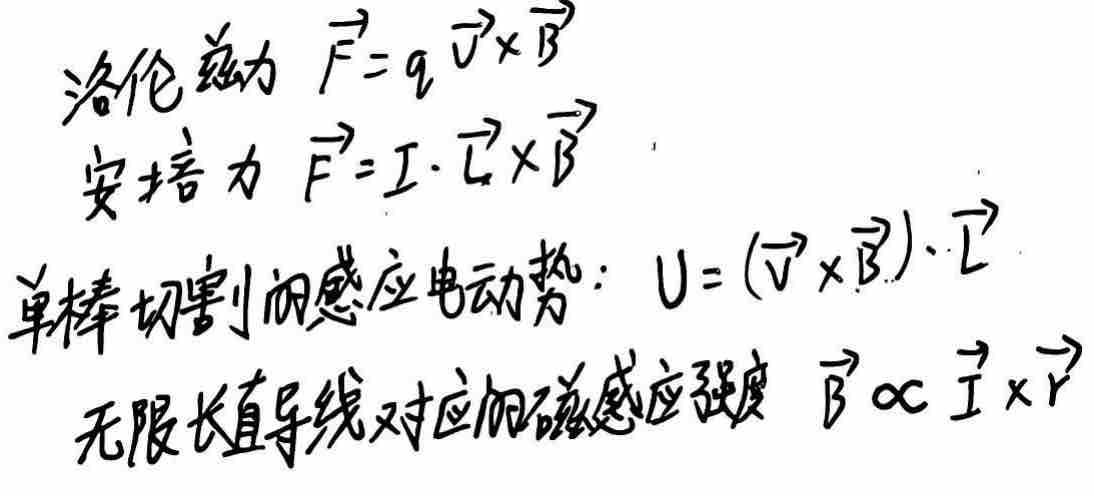 洛伦兹力 $\vec{F}=q\vec{v}\times\vec{B}$
安培力 $\vec{F}=I\cdot\vec{L}\times\vec{B}$
单棒切割的感应电动势: $U=(\vec{v}\times\vec{B})\cdot\vec{L}$
无限长直导线对应的磁感应强度 $\vec{B}\propto\vec{I}\times\vec{r}$